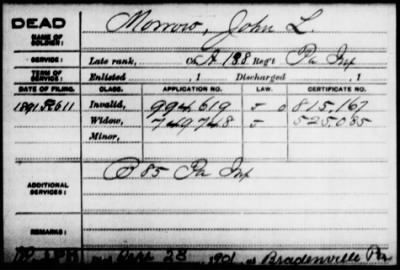 DEAD
NAME OF SOLDIER: Morrow, John L.
SERVICE: Late rank, Co A 138 Reg't Pa Inf
TERM OF SERVICE: Enlisted , 1 Discharged , 1
DATE OF FILING. CLASS. APPLICATION NO. LAW. CERTIFICATE NO.
1891 Invalid, 994.619 815.167
Widow, 749.748 525.085
Minor,
ADDITIONAL SERVICES: B 85 Pa Inf
REMARKS:
Sept 28 1901, at Bradenville Pa